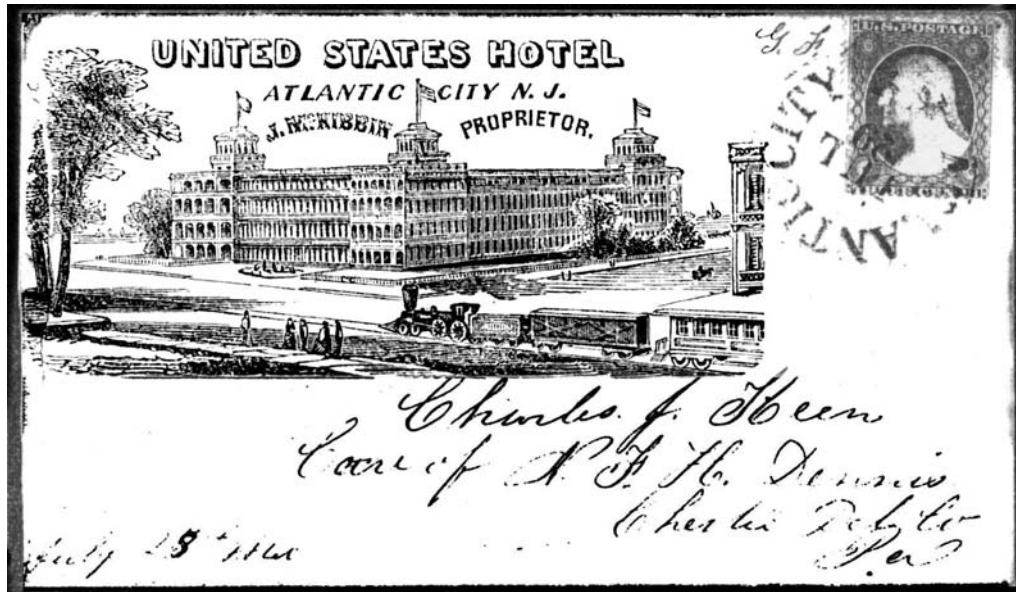 UNITED STATES HOTEL
ATLANTIC CITY N. J.
J. McKIBBIN PROPRIETOR.
U.S. POSTAGE
ANTIC CITY
Charles J. Keen
Care of N. F. H. Dennis
Chester
Pa
July